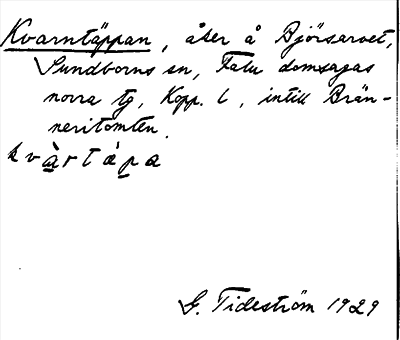 Kvarntäppan, åker å Björsarvet,
Sundborns sn, Falu domsagas
norra tg, Kopp. l, intill Brän-
neritomten.
kvàrtápa
G. Tideström 1929